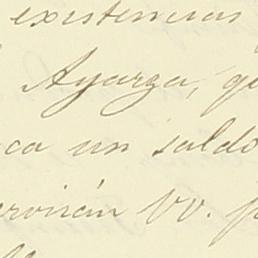 existencias
Ayarza, qu
ca un saldo
ervirán VV. p